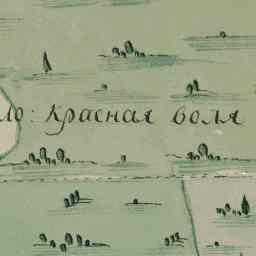 ло: Красная воля